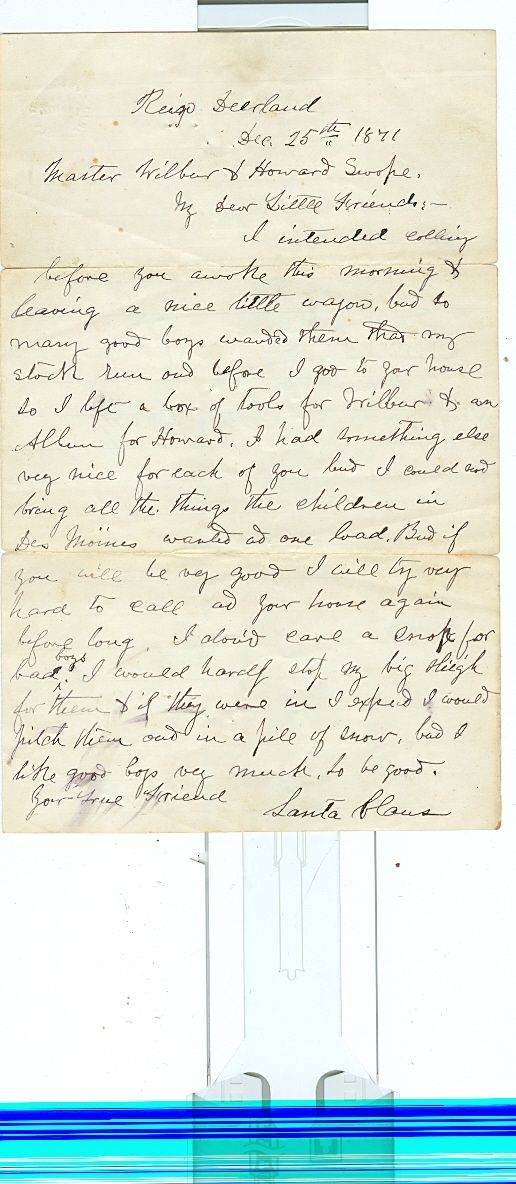 Reigo Deerland
Dec. 25th 1871
Master Wilbur & Howard Swope.
My Dear Little Friends:-
I intended calling
before you awoke this morning &
leaving a nice little wagon, but so
many good boys wanted them that my
stock run out before I got to your house
so I left a box of tools for Wilbur & an
Album for Howard. I had something else
very nice for each of you but I could not
bring all the things the children in
Des Moines wanted at one load. But if
you will be very good I will try very
hard to call at your house again
before long. I don't care a snap for
bad boys. I would hardly stop my big sleigh
for them & if they were in I expect I would
pitch them out in a pile of snow, but I
like good boys very much, so be good.
Your True Friend
Santa Claus